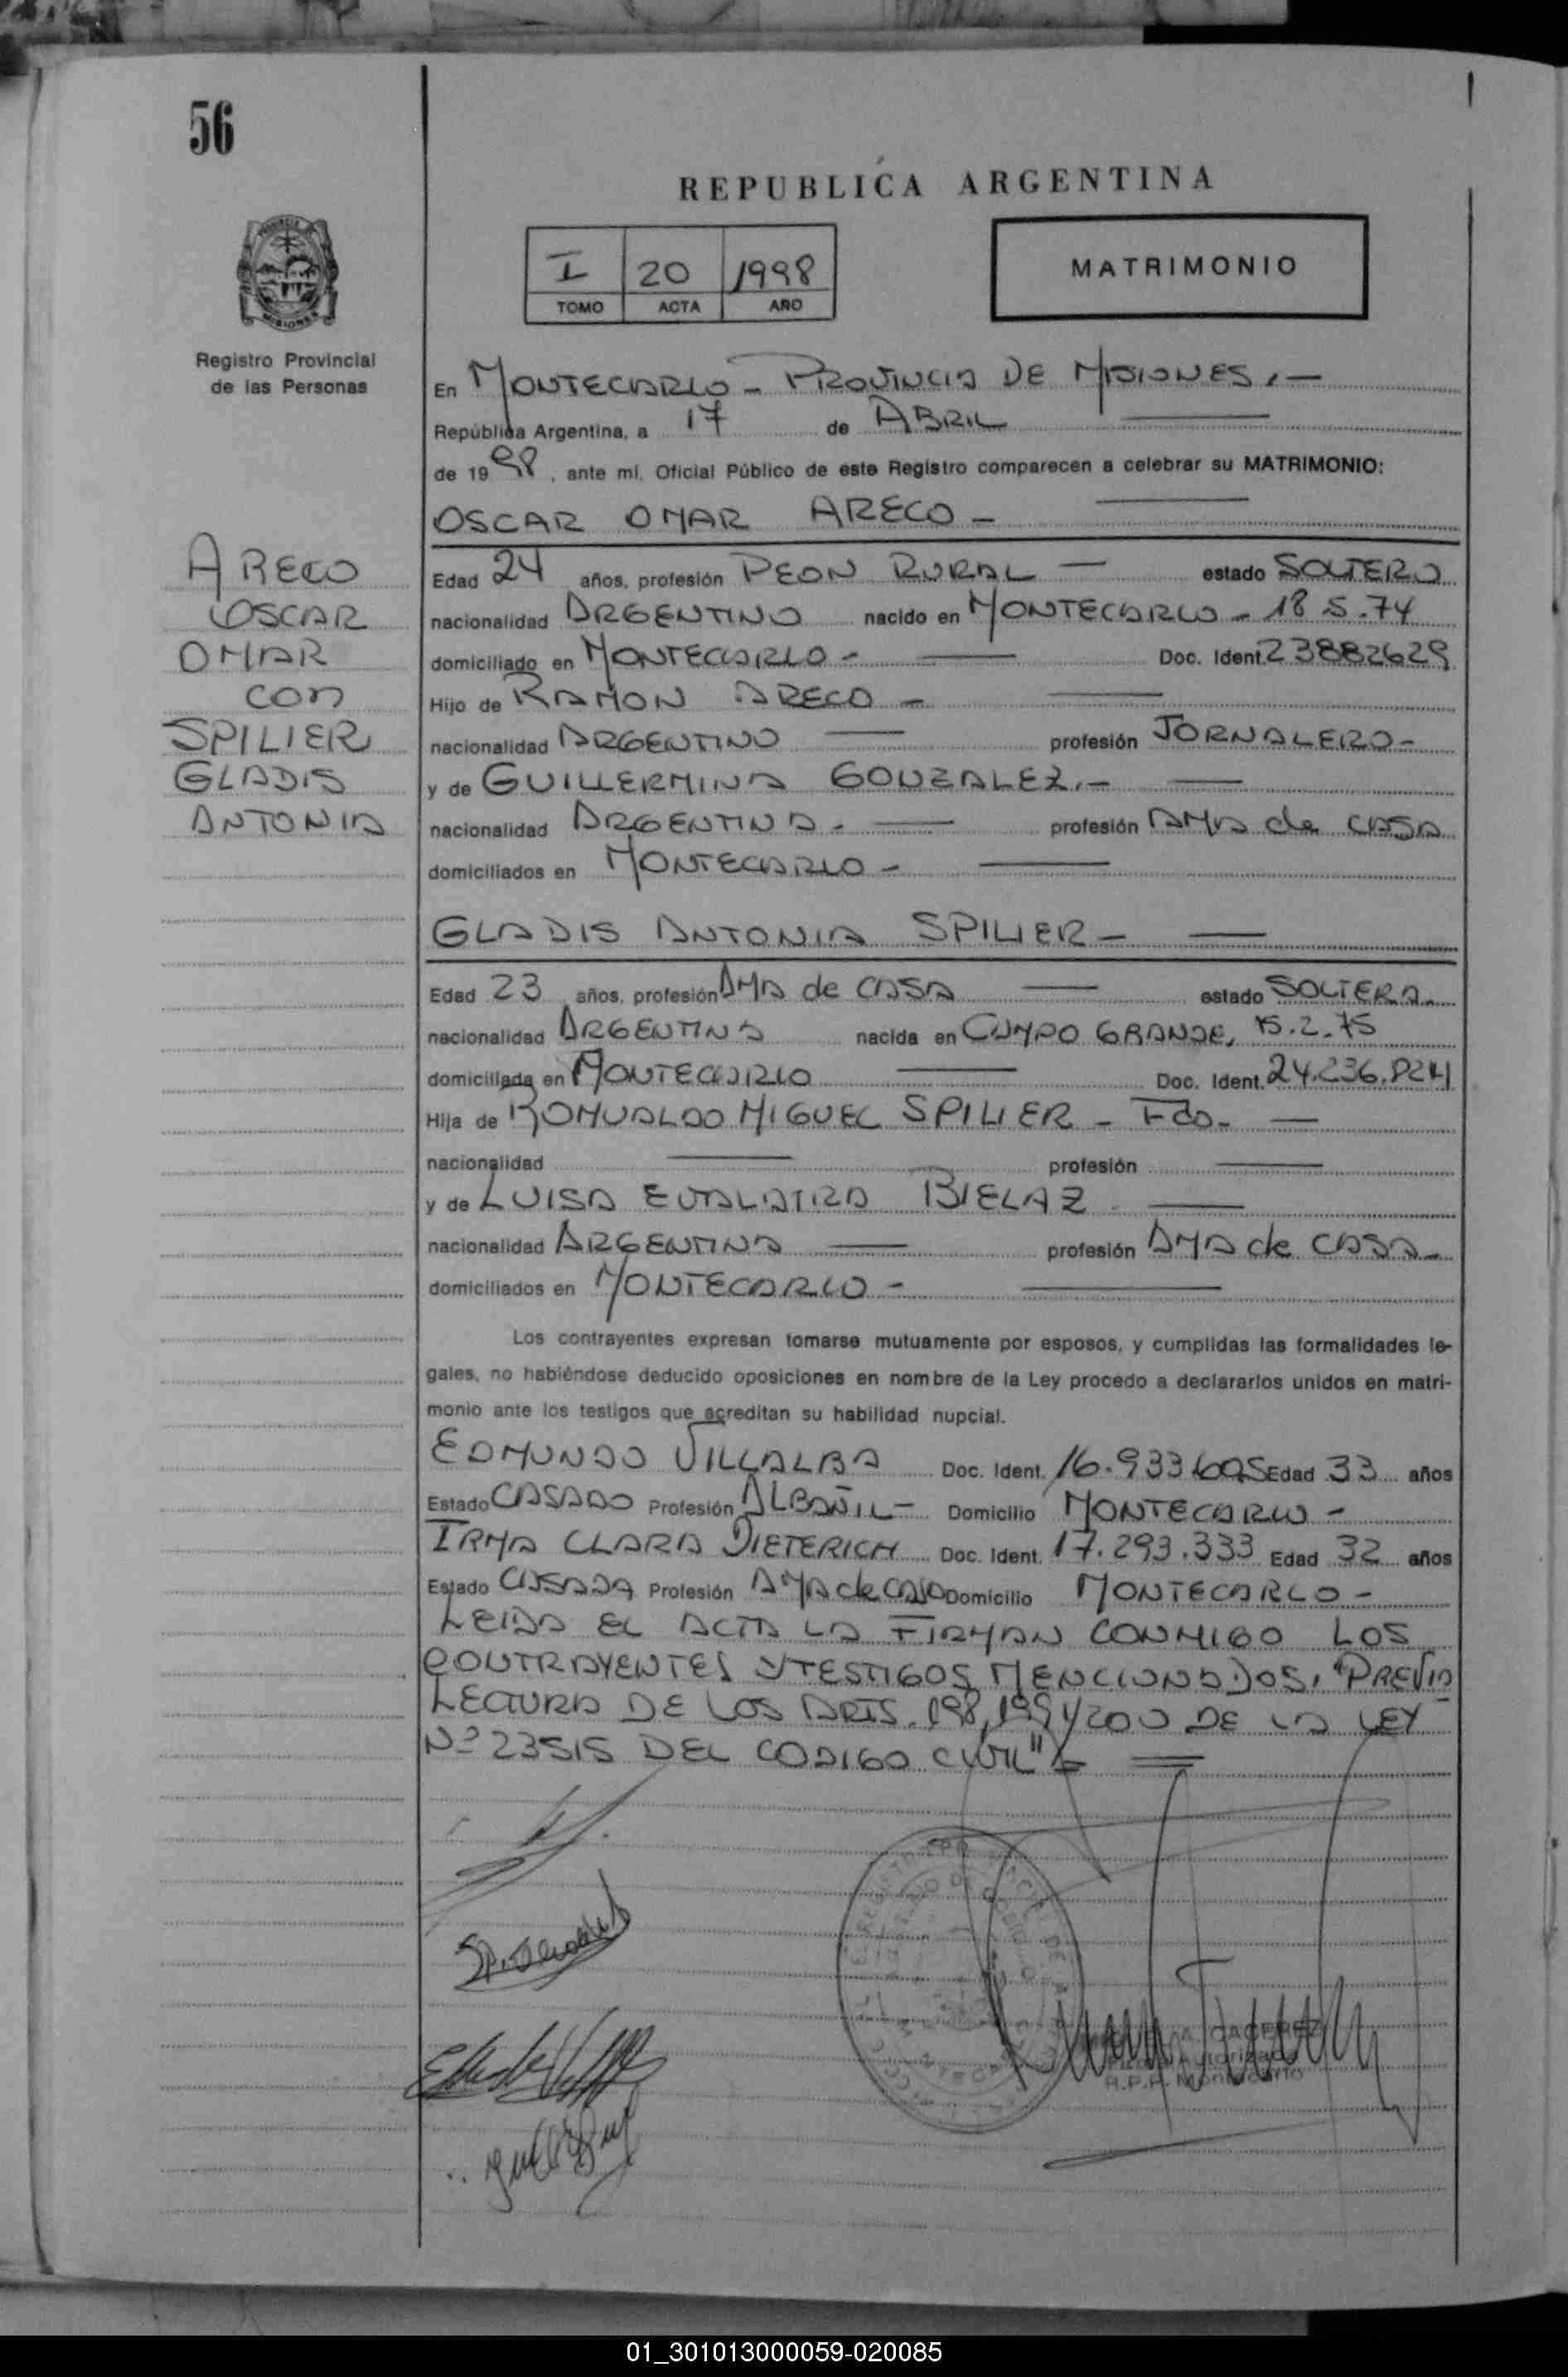 56
REPUBLICA ARGENTINA
I 20 1998
TOMO ACTA AÑO
MATRIMONIO
Registro Provincial
de las Personas
En MONTECARLO - PROVINCIA DE MISIONES.-
República Argentina, a 17 de ABRIL
de 1998, ante mí, Oficial Público de este Registro comparecen a celebrar su MATRIMONIO:
OSCAR OMAR ARECO -
ARECO
OSCAR
OMAR
con
SPILIER
GLADIS
ANTONIA
Edad 24 años, profesión PEON RURAL estado SOLTERO
nacionalidad ARGENTINO nacido en MONTECARLO - 18.5.74
domiciliado en MONTECARLO - Doc. Ident. 23882629
Hijo de RAMON ARECO -
nacionalidad ARGENTINO profesión JORNALERO-
y de GUILLERMINA GONZALEZ.-
nacionalidad ARGENTINA - profesión AMA de CASA
domiciliados en MONTECARLO -
GLADIS ANTONIA SPILIER -
Edad 23 años, profesión AMA de CASA estado SOLTERA
nacionalidad ARGENTINA nacida en CAMPO GRANDE, 15.2.75
domiciliada en MONTECARLO Doc. Ident. 24.236.824
Hija de ROMUALDO MIGUEL SPILIER - Fdo.
nacionalidad profesión
y de LUISA BIELAZ
nacionalidad ARGENTINA profesión AMA de CASA
domiciliados en MONTECARLO -
Los contrayentes expresan tomarse mutuamente por esposos, y cumplidas las formalidades le-
gales, no habiéndose deducido oposiciones en nombre de la Ley procedo a declararlos unidos en matri-
monio ante los testigos que acreditan su habilidad nupcial.
EDMUNDO VILLALBA Doc. Ident. 16.933.605 Edad 33 años
Estado CASADO Profesión ALBAÑIL - Domicilio MONTECARLO -
IRMA CLARA DIETERICH Doc. Ident. 17.293.333 Edad 32 años
Estado CASADA Profesión AMA de CASA Domicilio MONTECARLO -
LEIDA EL ACTA LA FIRMAN CONMIGO LOS
CONTRAYENTES Y TESTIGOS MENCIONADOS, "PREVIA
LECTURA DE LOS ARTS. 198, 199 Y 200 DE LA LEY
Nº 23515 DEL CODIGO CIVIL"
A. CACEREZ
R.P.P. Montecarlo
01_301013000059-020085